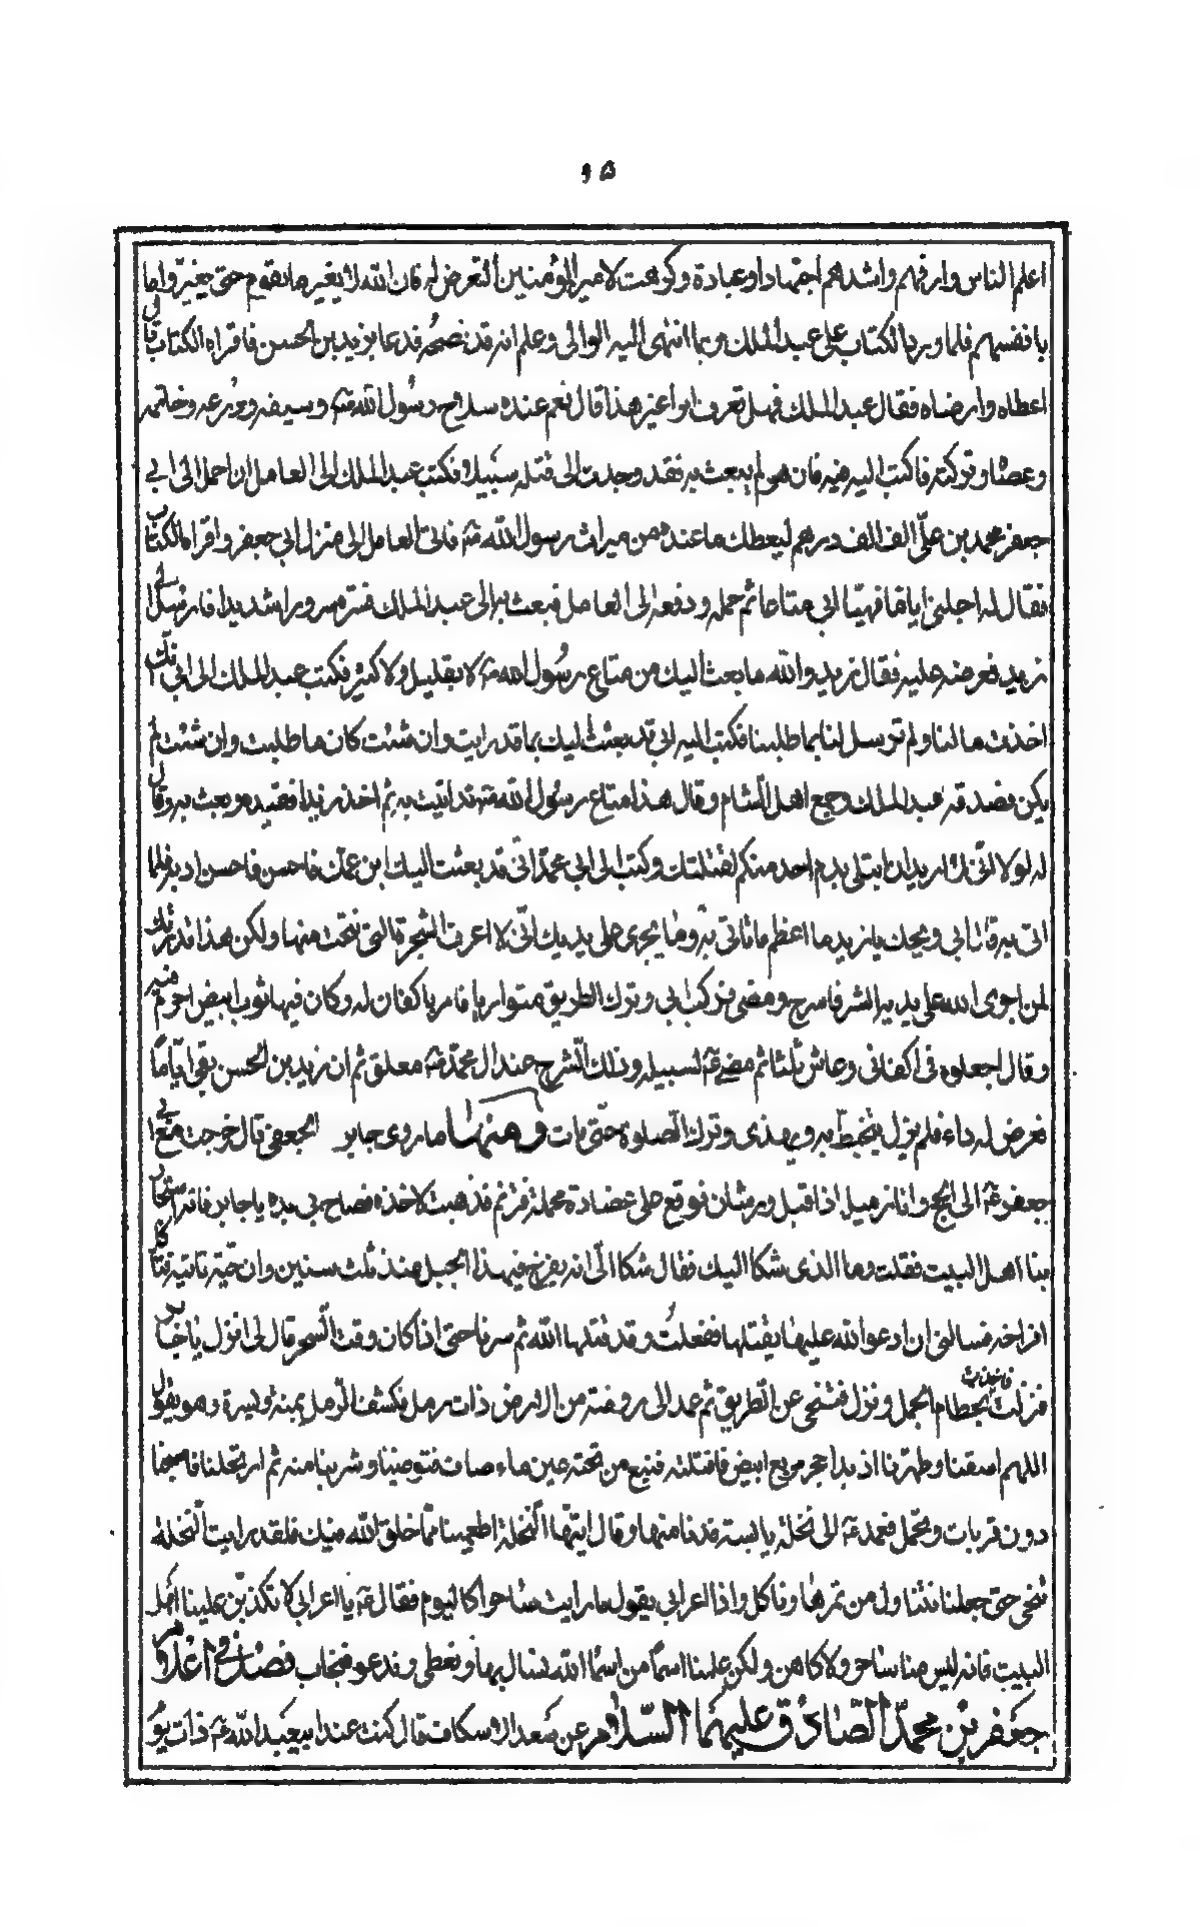 ٩٥
اعلم الناس وارفهم واشدهم اجتهادا وعبادة وكرهت لامير المؤمنين التعرض له فان الله لا يغير ما بقوم حتى يغيروا ما
بانفسهم فلما ورد الكتاب على عبد الملك وبما انتهى اليه الوالى وعلم انه قد نصحه فدعا بزيد بن الحسن فاقراه الكتاب قال
اعطاه وارضاه فقال عبد الملك فهل تعرف امرا غير هذا قال نعم عنده سلاح رسول الله صه وسيفه ودرعه وخاتمه
وعصاه وتركته فاكتب اليه فيه فان هو لم يبعث به فقد وجدت الى قتله سبيلا فكتب عبد الملك الى العامل ان احمل الى ابى
جعفر محمد بن على الف الف درهم ليعطك ما عنده من ميراث رسول الله صه فاتى العامل الى منزل ابى جعفر واقراه الكتاب
فقال له اجلنى اياما فهيّا ابى متاعا ثم حمله ودفعه الى العامل فبعث به الى عبد الملك فسر به سرورا شديدا فارسل الى
زيد فعرضه عليه فقال زيد والله ما بعث اليك من متاع رسول الله صه لا بقليل ولا كثير فكتب عبد الملك الى ابى انك
اخذت مالنا ولم ترسل لنا بما طلبنا فكتب اليه انى قد بعثت اليك بما قد رايت وان شئت كان ما طلبت وان شئت لم
يكن فصدقه عبد الملك وجمع اهل الشام وقال هذا متاع رسول الله صه قد اتيت به ثم اخذ زيدا فقيده وبعث به وقال
له لولا انى لا اريد ان ابتلى بدم احد منكم لقتلتك وكتب الى ابى محمد انى قد بعثت اليك ابن عمك فاحسن فاحسن ادبه فلما
اتى به قال ابى ويحك يا زيد ما اعظم ما تاتى به وما يجرى على يديك انى لا اعرف الشجرة التى نحت منها ولكن هذا قدر فويل
لمن اجرى الله على يديه الشر فاسرج ومضى فركب ابى وترك الطريق متواريا فامر باكفان له وكان فيها ثوب ابيض احرم فيه
وقال اجعلوه فى اكفانى وعاش ثلثا ثم مضى عه لسبيله وذلك السرج عند ال محمد عه معلق ثم ان زيد بن الحسن بقى اياما
فعرض له داء فلم يزل يتخبط به ويهذى وترك الصلوة حتى مات ومنها ما روى جابر الجعفى قال خرجت مع ابى
جعفر عه الى الحج وانا زميله اذ اقبل ورشان فوقع على عضادة محمله فترنم فذهبت لاخذه فصاح بى مه يا جابر فانه استجار
بنا اهل البيت فقلت وما الذى شكا اليك فقال شكا الى انه يفرخ فى هذا الجبل منذ ثلث سنين وان حيّة تاتيه فتاكل
افراخه فسالنى ان ادعو الله عليها يقتلها ففعلت وقد قتلها الله ثم سرنا حتى اذا كان وقت السحر قال لى انزل يا جابر
فنزلت فاخذت بخطام الجمل ونزل فتنحى عن الطريق ثم عمد الى روضة من الارض ذات رمل فكشف الرمل يمنة ويسرة وهو يقول
اللهم اسقنا وطهرنا اذ بدا حجر مربع ابيض فاقتلعه فنبع من تحته عين ماء صاف فتوضينا وشربنا منه ثم ارتحلنا فاصبحنا
دون قريات ونخل فعمد عه الى نخلة يابسة فدنا منها وقال ايتها النخلة اطعمينا مما خلق الله فيك فلقد رايت النخلة
تنحى حتى جعلنا نتناول من ثمرها وناكل واذا اعرابى يقول ما رايت ساحرا كاليوم فقال عه يا اعرابى لا تكذبن علينا اهل
البيت فانه ليس منا ساحر ولا كاهن ولكن علمنا اسما من اسماء الله نسال بها ونعطى وندعو فنجاب فصل فى اعلام
جعفر بن محمد الصادق عليهما السلام عن سعد الاسكاف قال كنت عند ابيعبد الله عه ذات يو